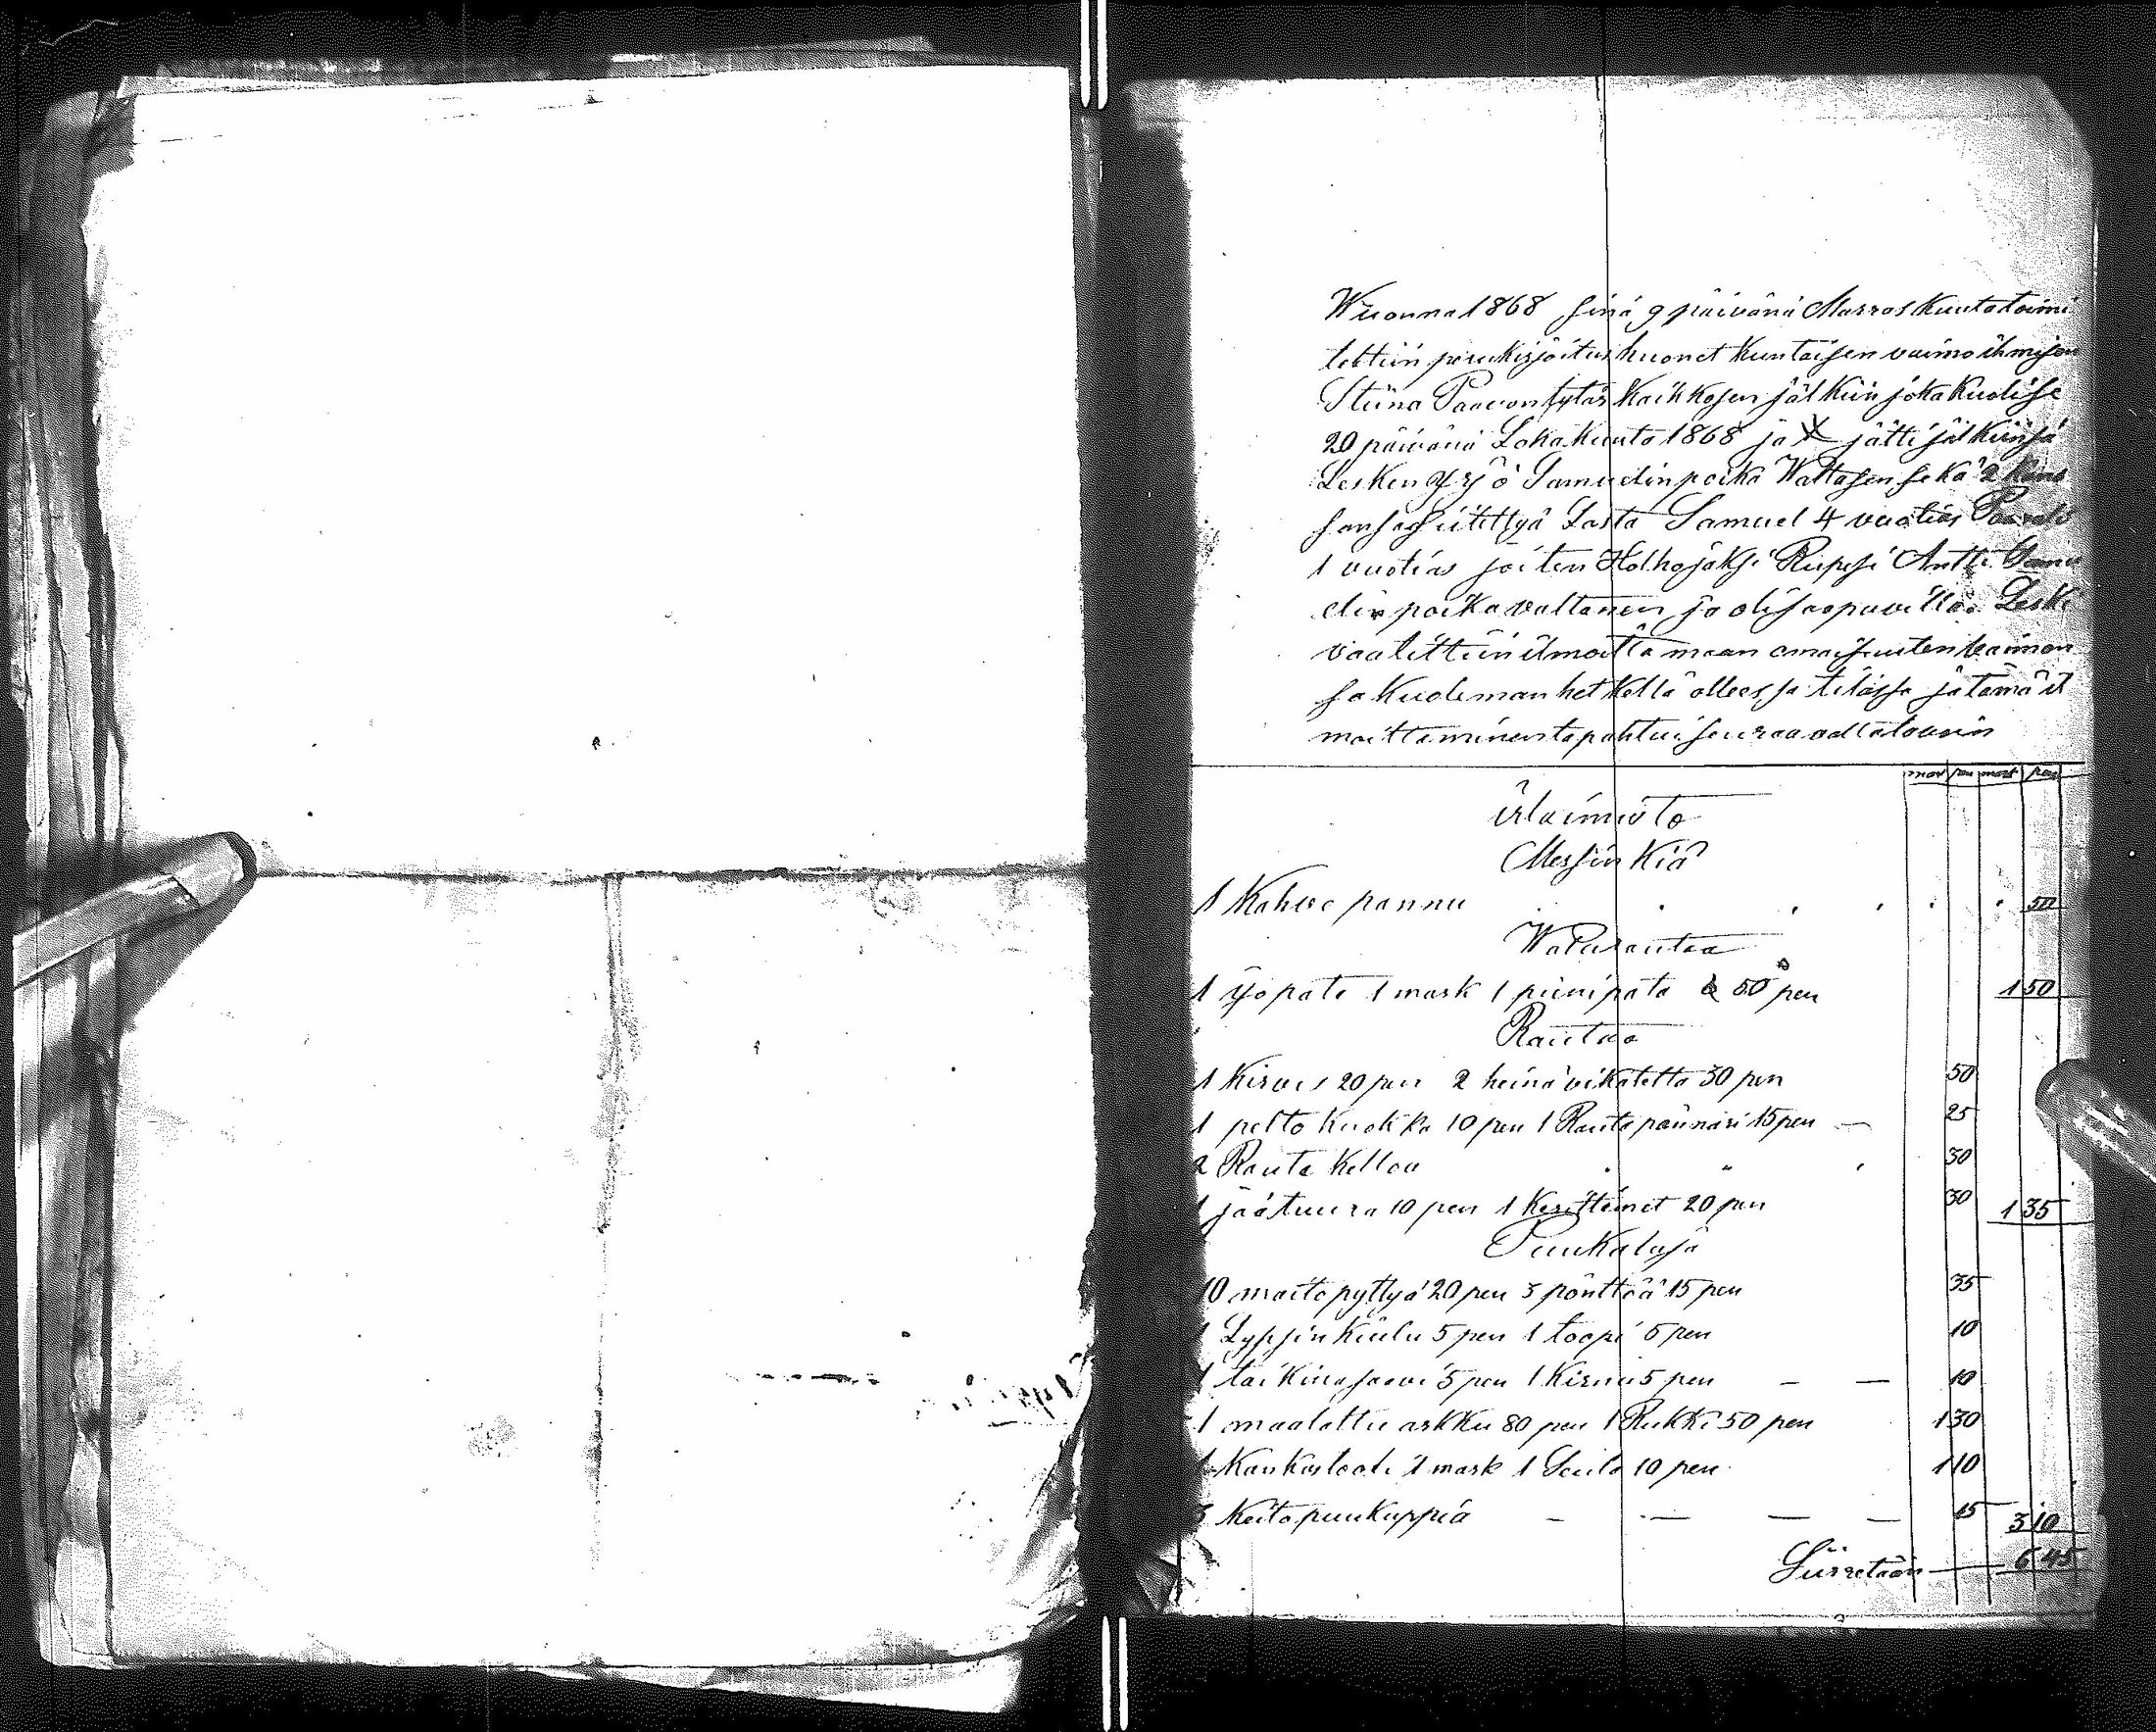 Wuonna 1868 sinä 9 päivänä Marras Kuuta toimi
tettiin perukirjoitus huonet kuntaisen vaimo ihmisen
Stiina Paavontytär Kaikkosen jälkiin joka kuoli se
20 päivänä Lokakuuta 1868 ja jätti jälkiinsä
Lesken Yrjö Samuelinpoika Waltasen sekä 2 kans
sansa siitettyä Lasta Samuel 4 vuotias Paavali
1 vuotias joiten Holhojaksi Rupesi Antti Samu
elin poika valtanen ja oli saapuvilla. Leski
vaalittiin ilmoittamaan omaisuuten vaimon
sa kuoleman hetkellä ollessa tilassa ja tämä il
moittaminen tapahtui seuraavalla tavoin
mar pen mark pen
irtaimisto
Messinkiä
1 Kahve pannu 50
Walurautaa
1 syöpata 1 mark 1 pieni pata 50 pen 1 50
Rautaa
1 Kirves 20 pen 2 heinä vikatetta 30 pen 50
1 pelto kuokka 10 pen 1 Rauta pännäri 15 pen 25
2 Rauta Kelloa 30
1 jäätuura 10 pen 1 Kerittimet 20 pen 30 1 35
Puukaluja
10 maito pyttyä 20 pen 3 pönttöä 15 pen 35
1 Lypsin kiulu 5 pen 1 toopi 5 pen 10
1 taikinasaavi 5 pen 1 Kirnu 5 pen 10
1 maalattu arkku 80 pen 1 Rukki 50 pen 1 30
1 Kankastooli 1 mark 1 Seula 10 pen 1 10
3 puukuppiä 15 3 10
Siirretään 6 45